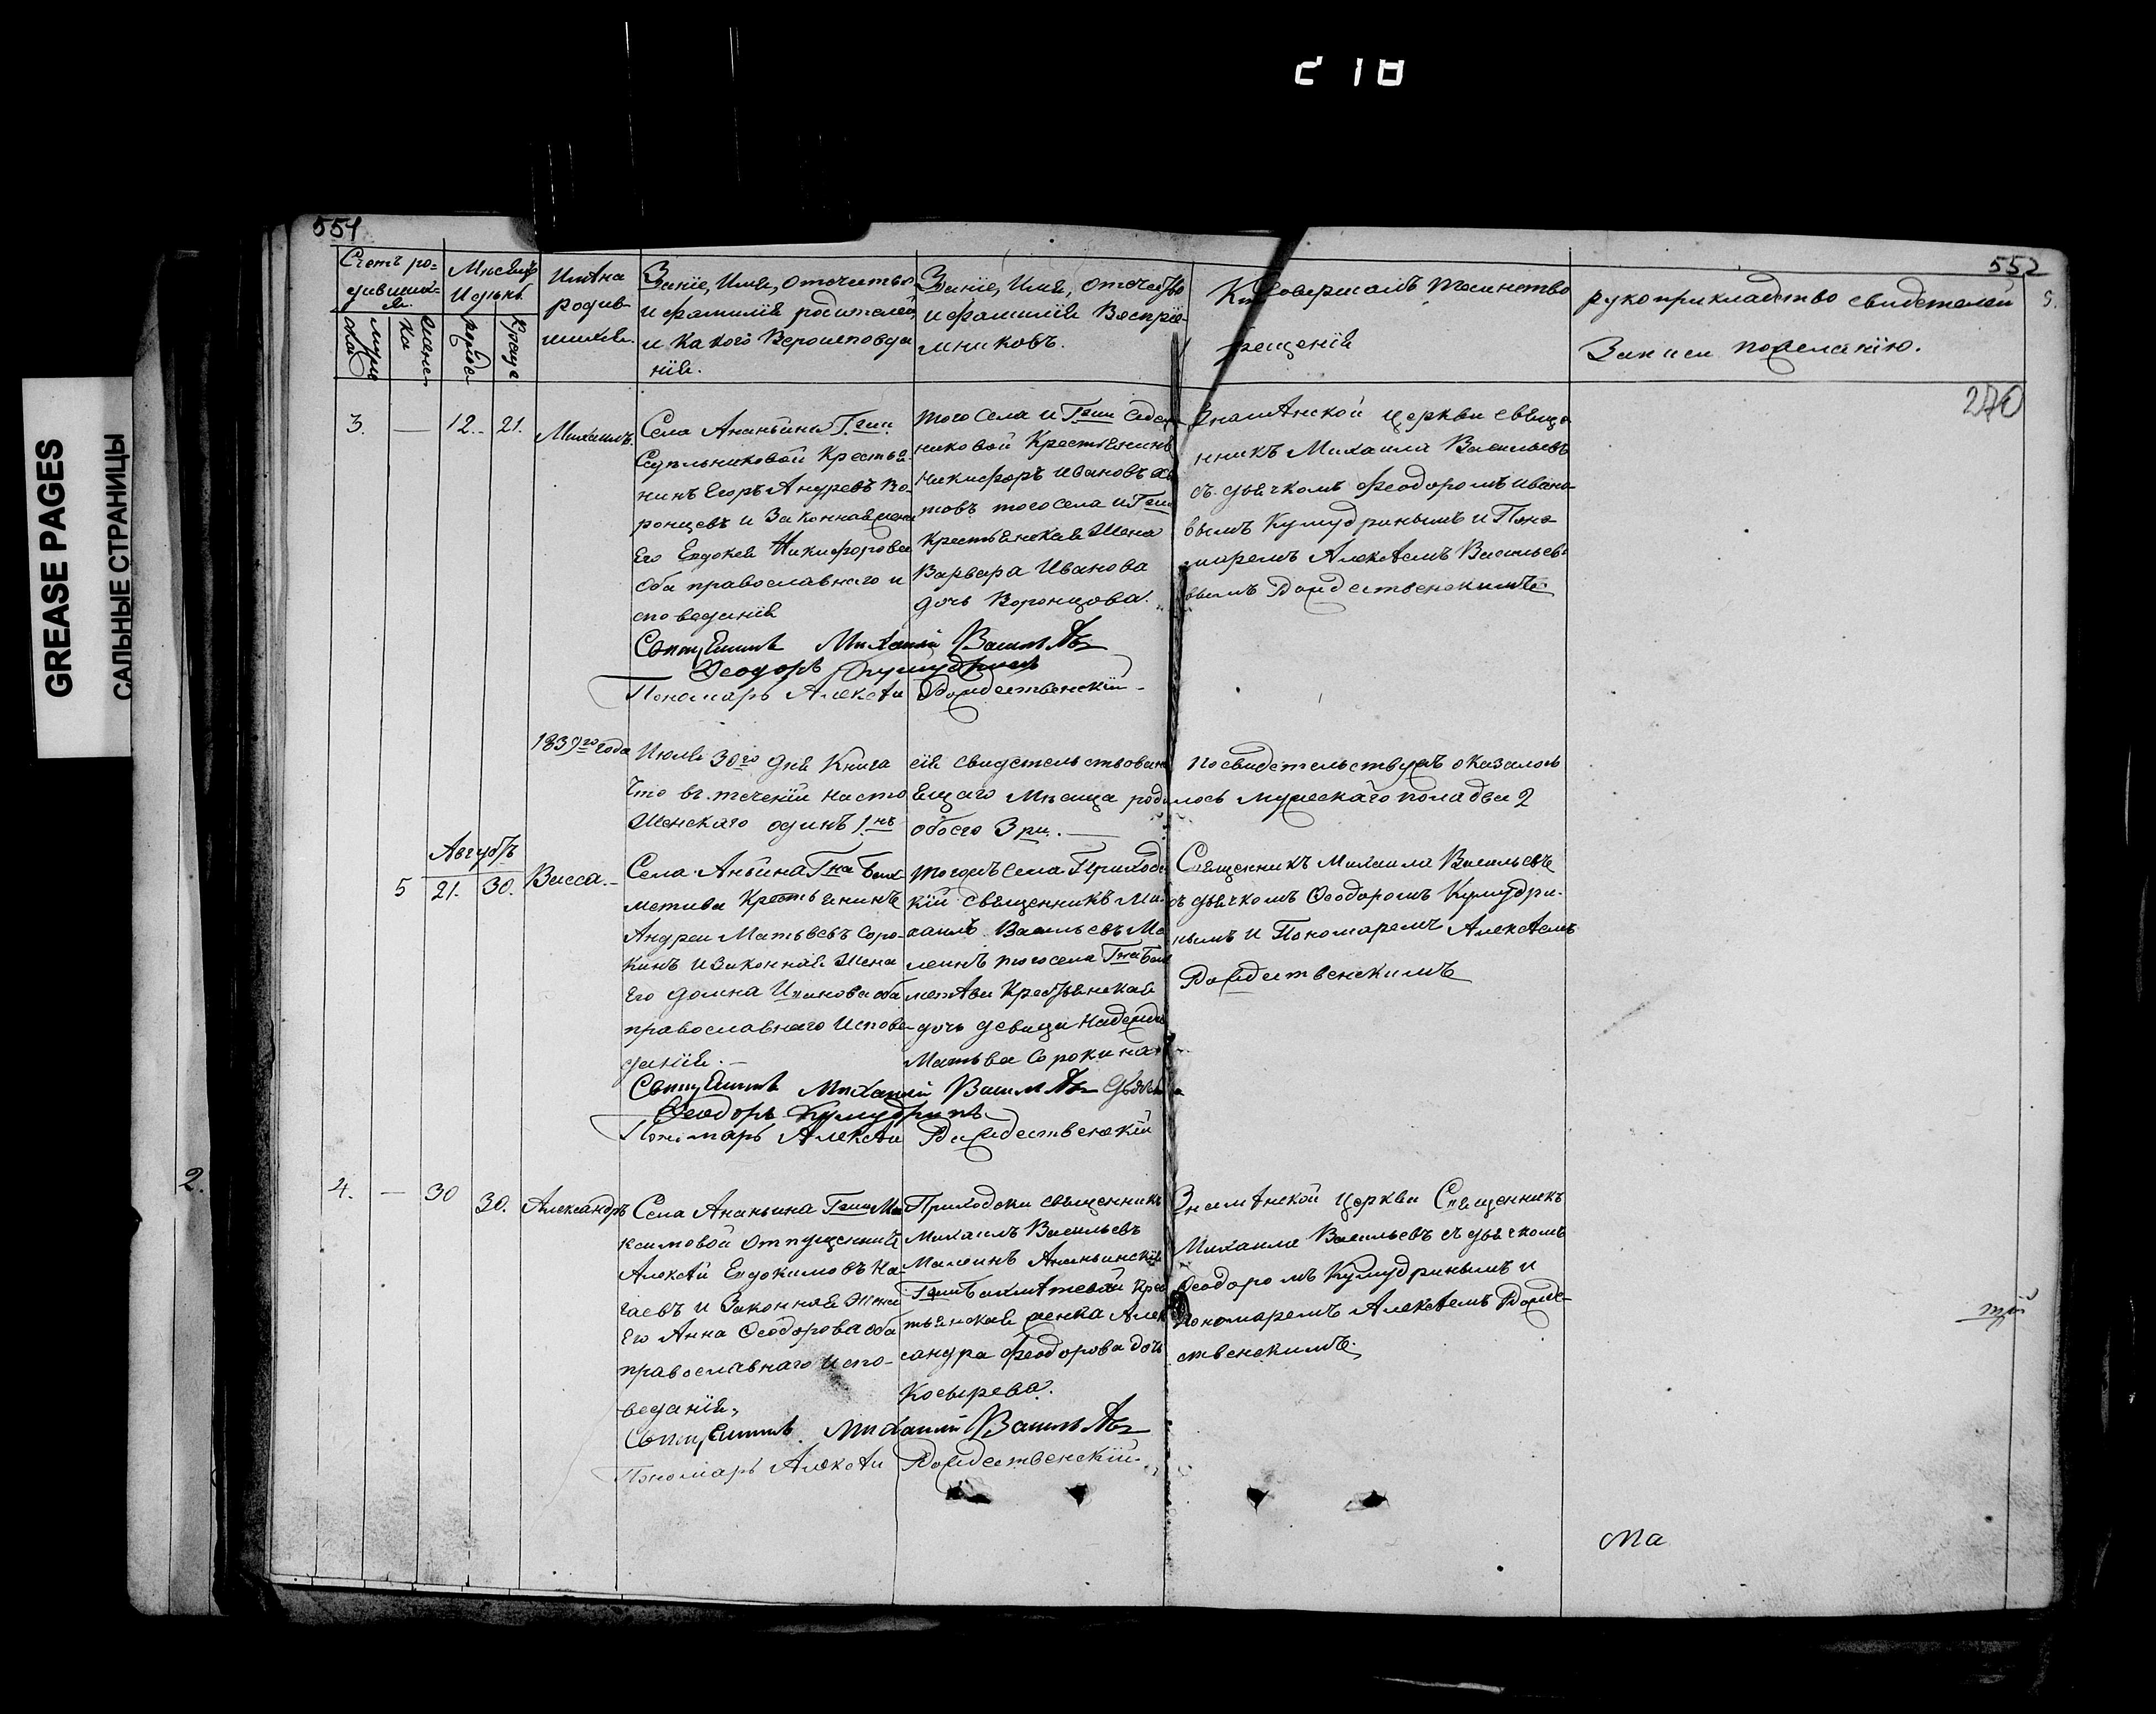 218
GREASE PAGES
САЛЬНЫЕ СТРАНИЦЫ
551
552
Счетъ ро-
дивших-
ся.
муже
ска
женс
ка
Мѣсяцъ
И день
рожде
Креще
Имѣна
родив-
шихся.
Званіе, Имя, Отчество
и фамилія родителей,
и Какого Вероисповеда
нія.
Званіе, Имя, Отчество
и фамилія Воспріе-
мниковъ.
Кто Совершалъ таинство
Крещенія
рукоприкладство свидетелей
Записи пожеланію.
270
3. — 12. 21. Михаилъ.
Села Ананьина Гжи
Крестья
нинъ Егоръ Андревъ Во-
ронцовъ и Законная жена
Его Евдокея Никифорова
Оба православнаго и
споведанія
того Села и Гжи
никовой Крестьянинъ
Никифоръ Ивановъ
товъ того села и Гжи
Крестьянская Жена
Варвара Иванова
дочь Воронцова.
Знамѣнской церкви свяще
нникъ Михаилъ Васильевъ
съ дьячкомъ Феодоромъ Ивано-
вымъ Кумудринымъ и Поно
маремъ Алексѣемъ Васильев-
вымъ Рождественскимъ
Священникъ Михаилъ Васильевъ
Феодоръ Кумудринъ
Пономарь Алексѣи Рождественскій
1839го года Июля 30го дня Книга сія свидетельствована Посвидетельствуемъ оказалось
Что въ течении насто ящаго Мѣсяца родилось мужескаго пола два 2
Женскаго одинъ 1нъ обоего 3ри. —
Августъ
5 21. 30. Васса. —
Села Аньина Гна Бах-
метива Крестьянинъ
Андреи Матьвевъ Соро-
кинъ и Законная Жена
Его Домна Иванова оба
православнаго Испове-
данія. —
тогожъ села Приходс
кій священникъ Ми-
хаилъ Васильевъ Ма
леинъ того села Гна Бах
метѣва Крестьянская
дочь девица Надежда
Матьва Сорокина
Священникъ Михаилъ Васильевъ
съ дьячкомъ Феодоромъ Кумудри-
нымъ и Пономаремъ Алексѣемъ
Рождественскимъ
Священникъ Михаилъ Васильевъ Дьячекъ
Феодоръ Кумудринъ
Пономарь Алексѣи Рождественскій
2.
4. — 30 30. Александръ
Села Ананьина Гжи Ма
ксимовой Отпущенникъ
Алексѣй Евдокимовъ На-
гаевъ и Законная Жена
Его Анна Феодорова оба
православнаго Испо-
веданія,
Приходски священникъ
Михаилъ Васильевъ
Малеинъ Ананьинская
Гжи Бахмѣтевой Крес
тьянская женка Алек
сандра Феодорова дочь
Косырева.
Знамѣнской Церкви Священникъ
Михаилъ Васильевъ съ дьячкомъ
Феодоромъ Кумудринымъ и
пономаремъ Алексѣемъ Рожде-
ственскимъ.
Священникъ Михаилъ Васильевъ
Пономарь Алексѣи Рождественскій.
та